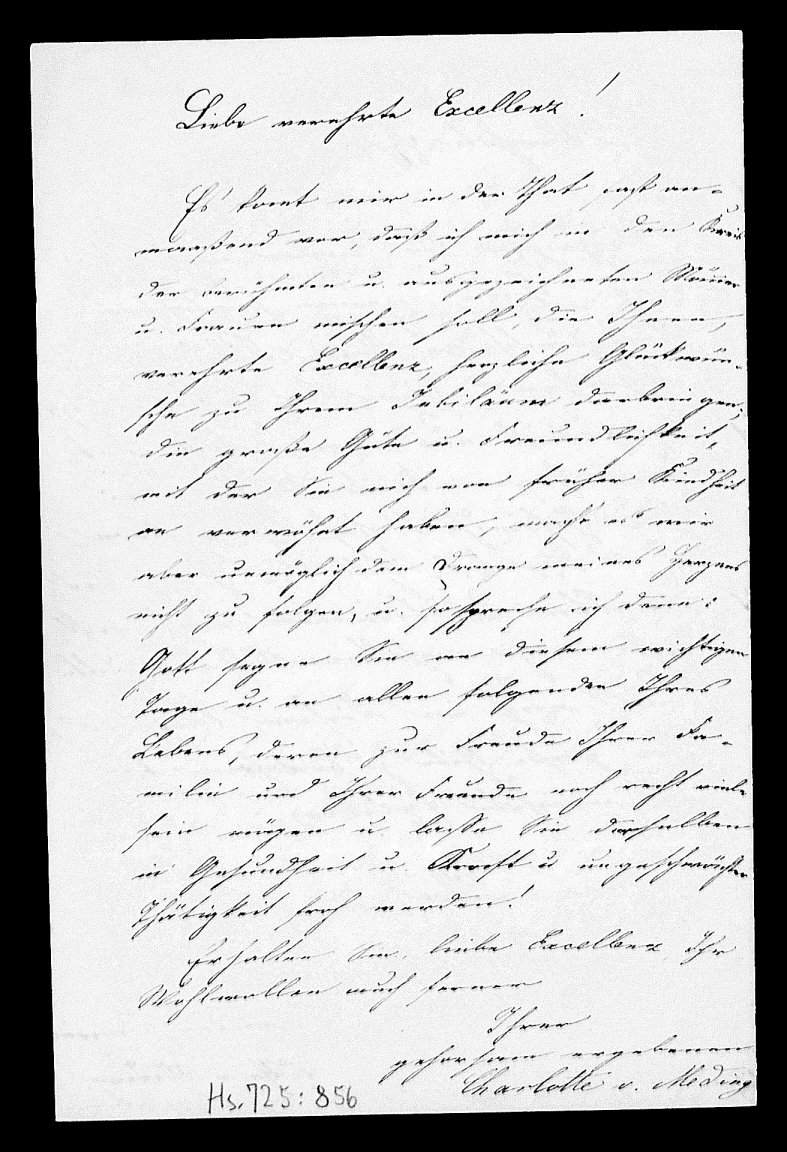 Liebe verehrte Excellenz!
Es komt mir in der That fast an-
maaßend vor, daß ich mich in den Kreis
der berühmten u. ausgezeichneten Männer
u. Frauen mischen soll, die Ihnen,
verehrte Excellenz, herzliche Glückwün-
sche zu Ihrem Jubiläum darbringen;
die große Güte u. Freundlichkeit,
mit der Sie mich von früher Kindheit
an verwöhnt haben, macht es mir
aber unmöglich dem Drange meines Herzens
nicht zu folgen, u. so spreche ich denn:
Gott segne Sie an diesem wichtigen
Tage u. an allen folgenden Ihres
Lebens, deren zur Freude Ihrer Fa-
milie und Ihrer Freunde noch recht viele
sein mögen u. lasse Sie derselben
in Gesundheit u. Kraft u ungeschwächter
Thätigkeit froh werden!
Erhalten Sie, liebe Excellenz Ihr
Wohlwollen auch ferner
Ihrer
gehorsam ergebenen
Charlotte v. Meding
Hs. 725: 856